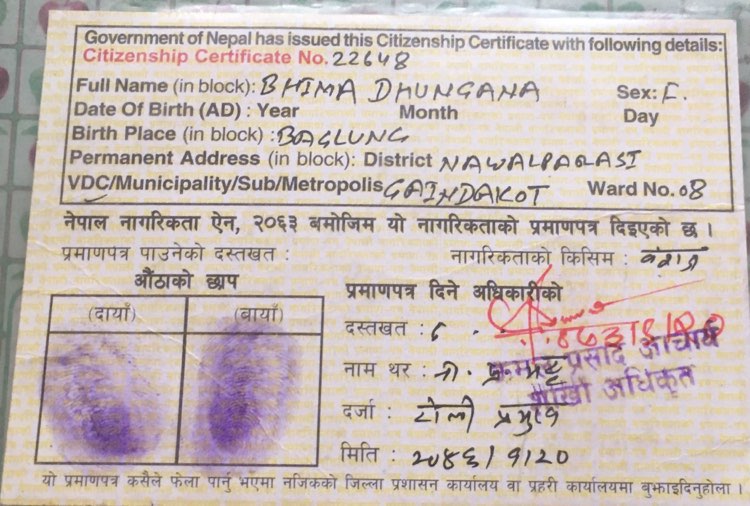 Government of Nepal has issued this Citizenship Certificate with following details:
Citizenship Certificate No. 22648
Full Name (in block): BHIMA DHUNGANA Sex: F.
Date Of Birth (AD) : Year Month Day
Birth Place (in block) : BAGLUNG
Permanent Address (in block): District NAWALPARASI
VDC/Municipality/Sub/Metropolis GAINDAKOT Ward No. 08
नेपाल नागरिकता ऐन, २०६३ बमोजिम यो नागरिकताको प्रमाणपत्र दिइएको छ ।
प्रमाणपत्र पाउनेको दस्तखत : नागरिकताको किसिम : वंशज
औंठाको छाप
(दायाँ) (बायाँ)
प्रमाणपत्र दिने अधिकारीको
दस्तखत :
प्रसाद आचार्य
नाम थर :
शाखा अधिकृत
दर्जा : टोली प्रमुख
मिति :
यो प्रमाणपत्र कसैले फेला पार्नु भएमा नजिकको जिल्ला प्रशासन कार्यालय वा प्रहरी कार्यालयमा बुझाइदिनुहोला ।